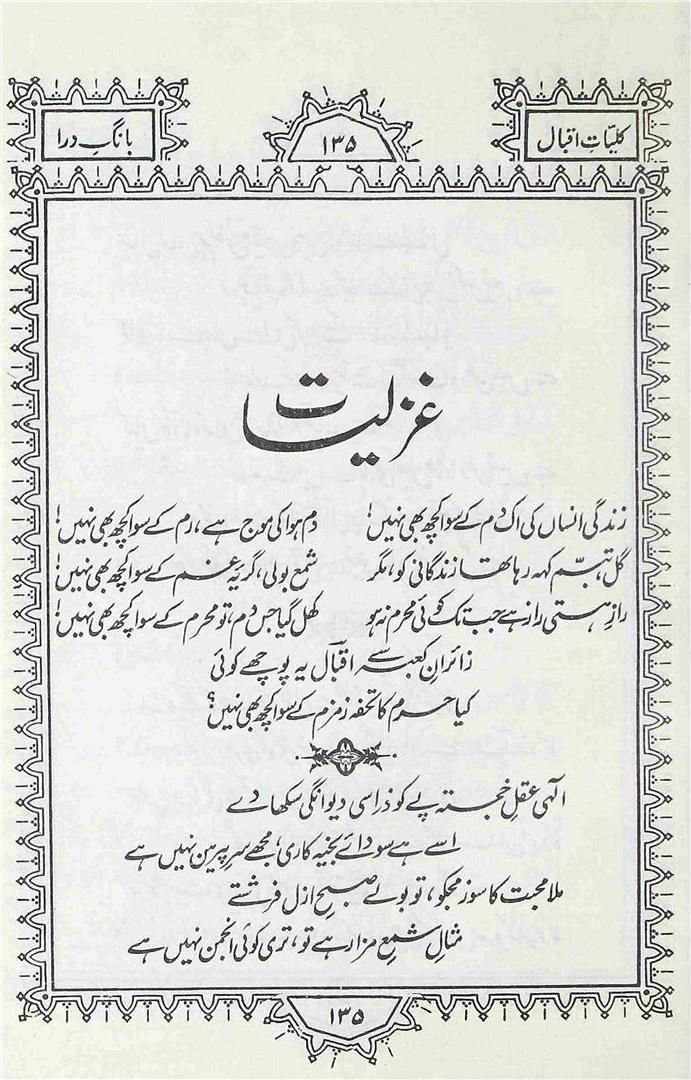 کلیاتِ اقبال
۱۳۵
بانگِ درا
غزلیات
زندگی انساں کی اک دم کے سوا کچھ بھی نہیں! دم ہوا کی موج ہے، رم کے سوا کچھ بھی نہیں!
گل تبسّم کہہ رہا تھا زندگانی کو، مگر شمع بولی، گریۂ غم کے سوا کچھ بھی نہیں!
رازِ ہستی راز ہے جب تک کوئی محرم نہ ہو کھل گیا جس دم، تو محرم کے سوا کچھ بھی نہیں!
زائرانِ کعبہ سے اقبالؔ یہ پوچھے کوئی
کیا حرم کا تحفہ زمزم کے سوا کچھ بھی نہیں؟
الٰہی عقلِ خجستہ پے کو ذرا سی دیوانگی سکھا دے
اسے ہے سودائے بخیہ کاری، مجھے سرِ پیرہن نہیں ہے
ملا محبت کا سوز مجکو، تو بولے صبحِ ازل فرشتے
مثالِ شمعِ مزار ہے تو، تری کوئی انجمن نہیں ہے
۱۳۵